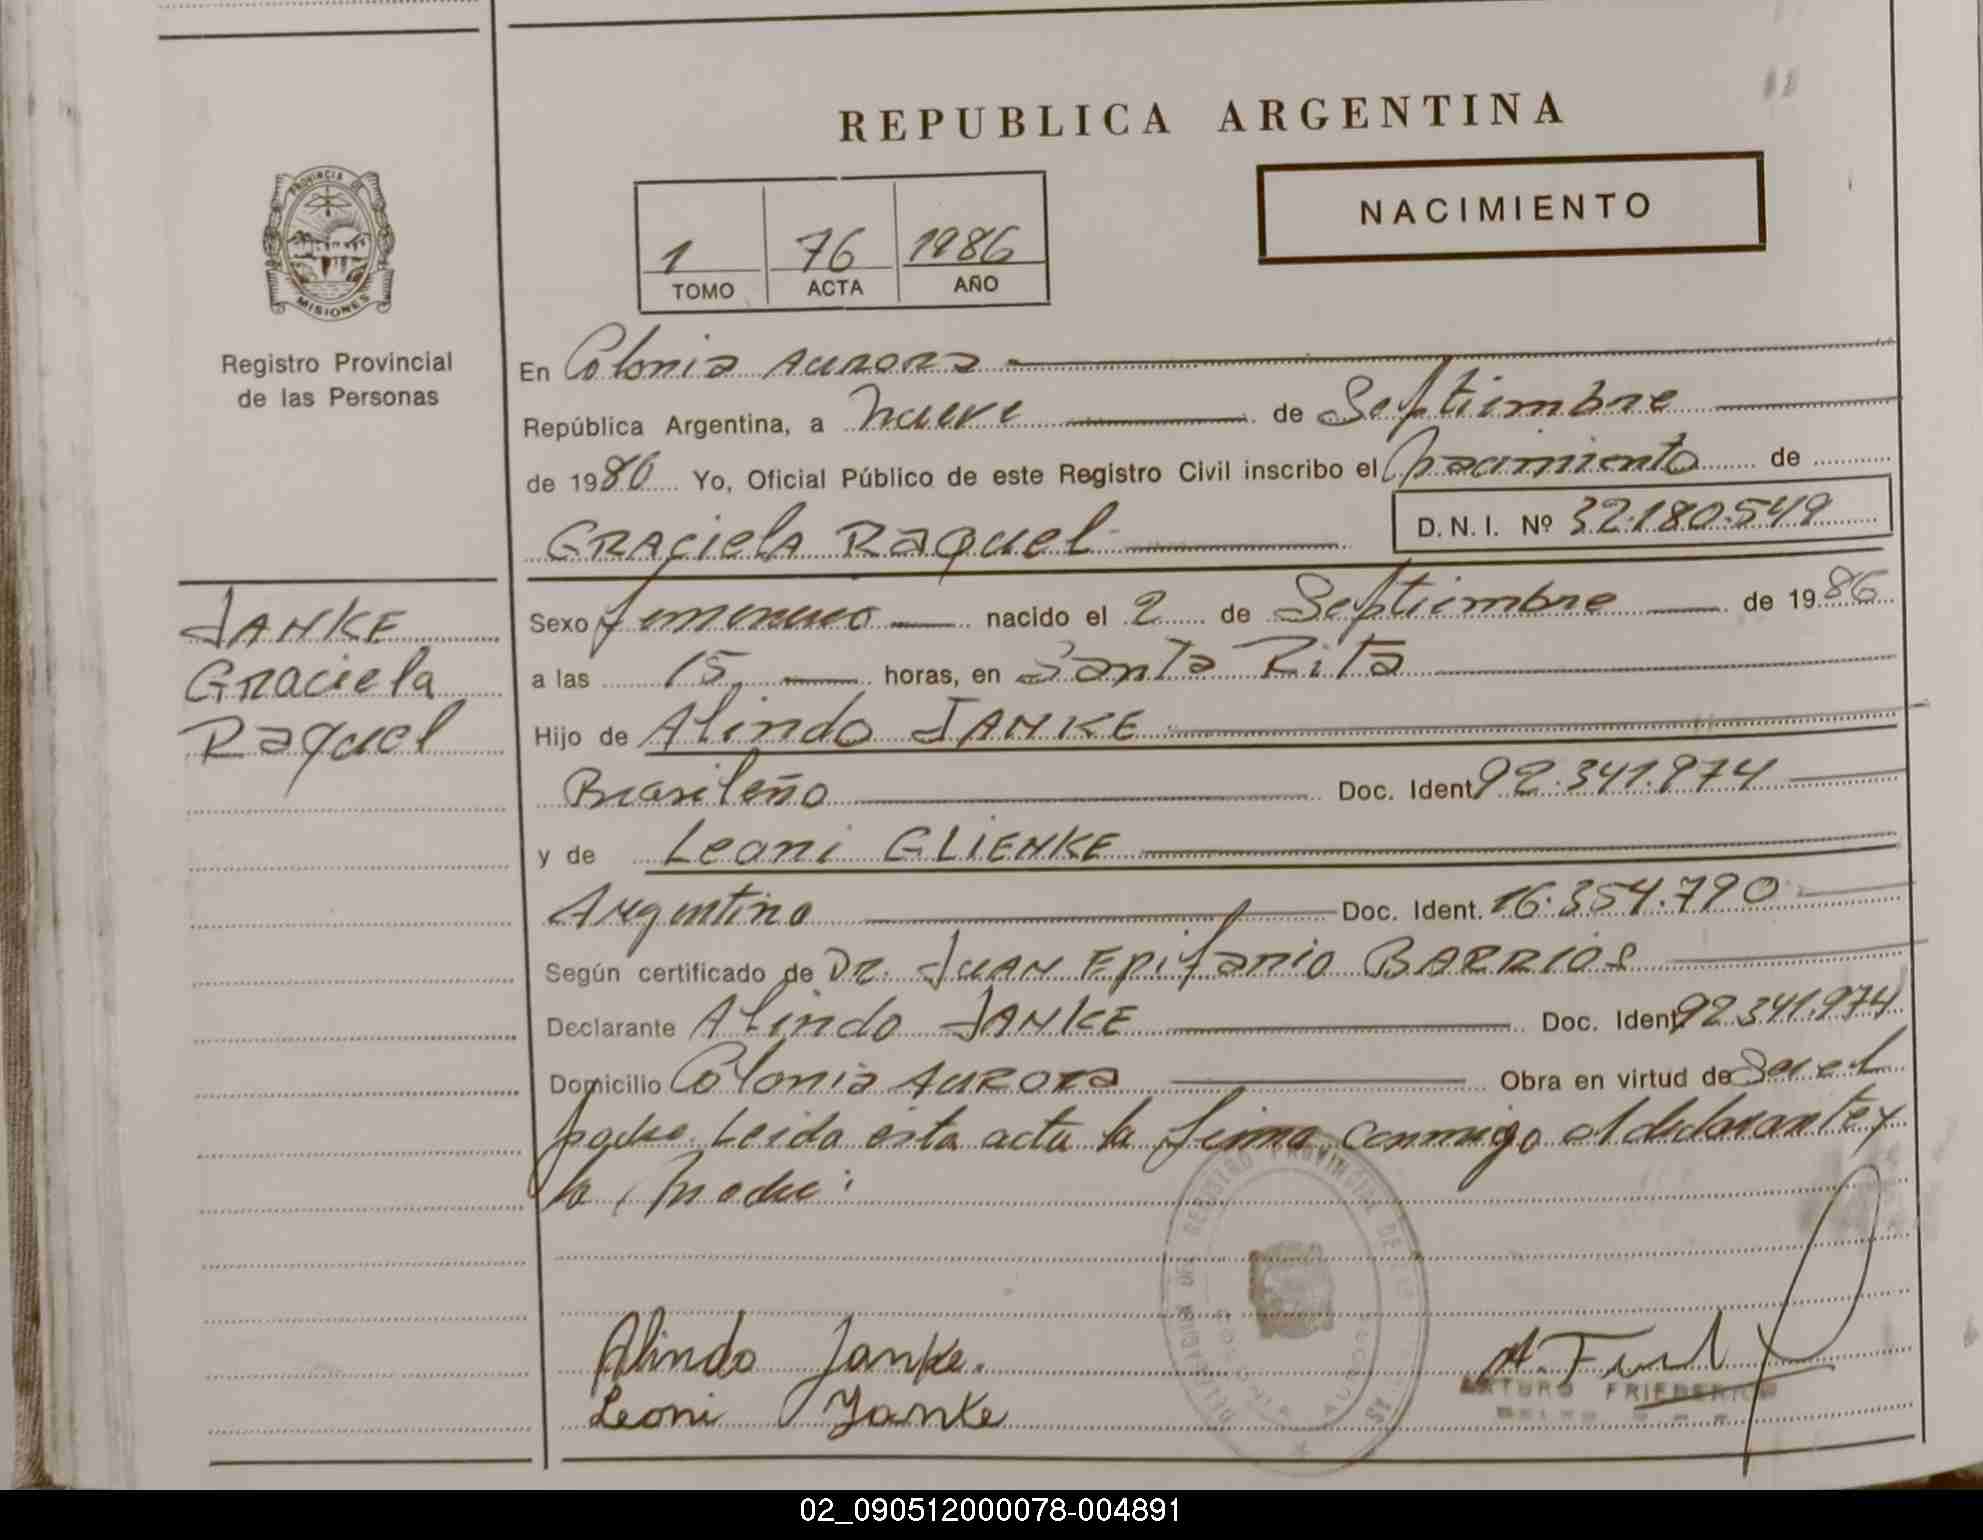 REPUBLICA ARGENTINA
NACIMIENTO
1 76 1986
TOMO ACTA AÑO
PROVINCIA DE
MISIONES
Registro Provincial
de las Personas
En Colonia Aurora
República Argentina, a nueve de Septiembre
de 1986 Yo, Oficial Público de este Registro Civil inscribo el nacimiento de
GRACIELA RAQUEL D.N.I. Nº 32.180.549
JANKE
Graciela
Raquel
Sexo femenino nacido el 2 de Septiembre de 1986
a las 15 horas, en Santa Rita
Hijo de Alindo JANKE
Brasileño Doc. Ident. 92.341.974
y de Leoni GLIENKE
Argentina Doc. Ident. 16.354.790
Según certificado de Dr. JUAN Epifanio BARRIOS
Declarante Alindo JANKE Doc. Ident. 92.341.974
Domicilio Colonia Aurora Obra en virtud de Ser el
padre. Leida esta acta la firma conmigo el declarante y
la Madre:
Alindo Janke.
Leoni Janke
ARTURO FRIEDERICH
02_090512000078-004891